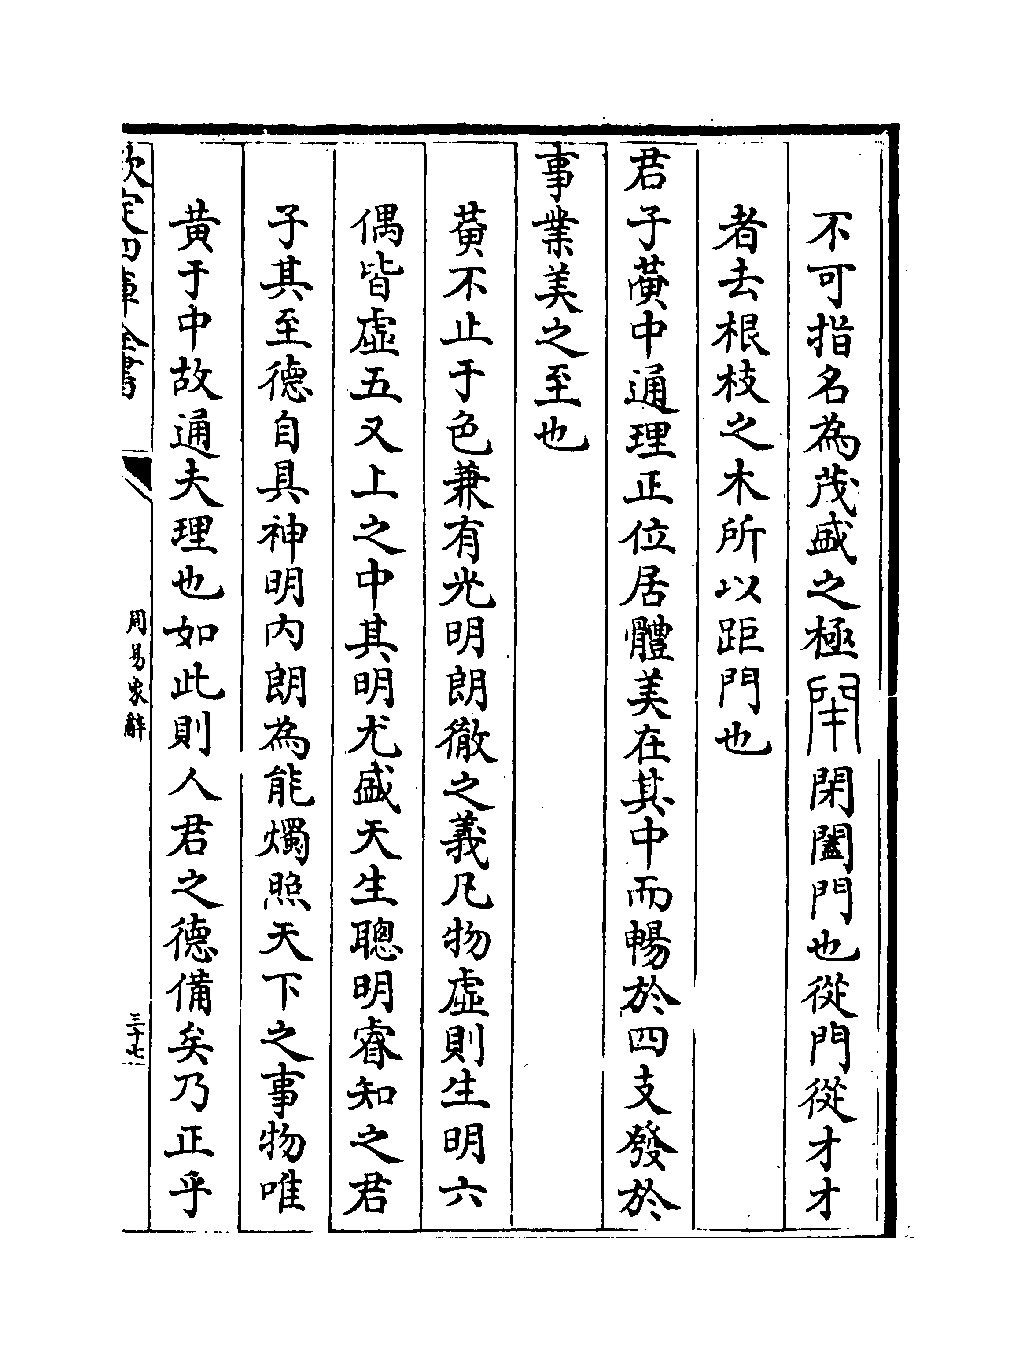 不可指名為茂盛之極閉閉闔門也從門從才才
者去根枝之木所以距門也
君子黃中通理正位居體美在其中而暢於四支發於
事業美之至也
黃不止于色兼有光明朗徹之義凡物虛則生明六
偶皆虛五又上之中其明尤盛天生聰明睿知之君
子其至德自具神明內朗為能燭照天下之事物唯
黃于中故通夫理也如此則人君之德備矣乃正乎
欽定四庫全書
周易象辭
三十七